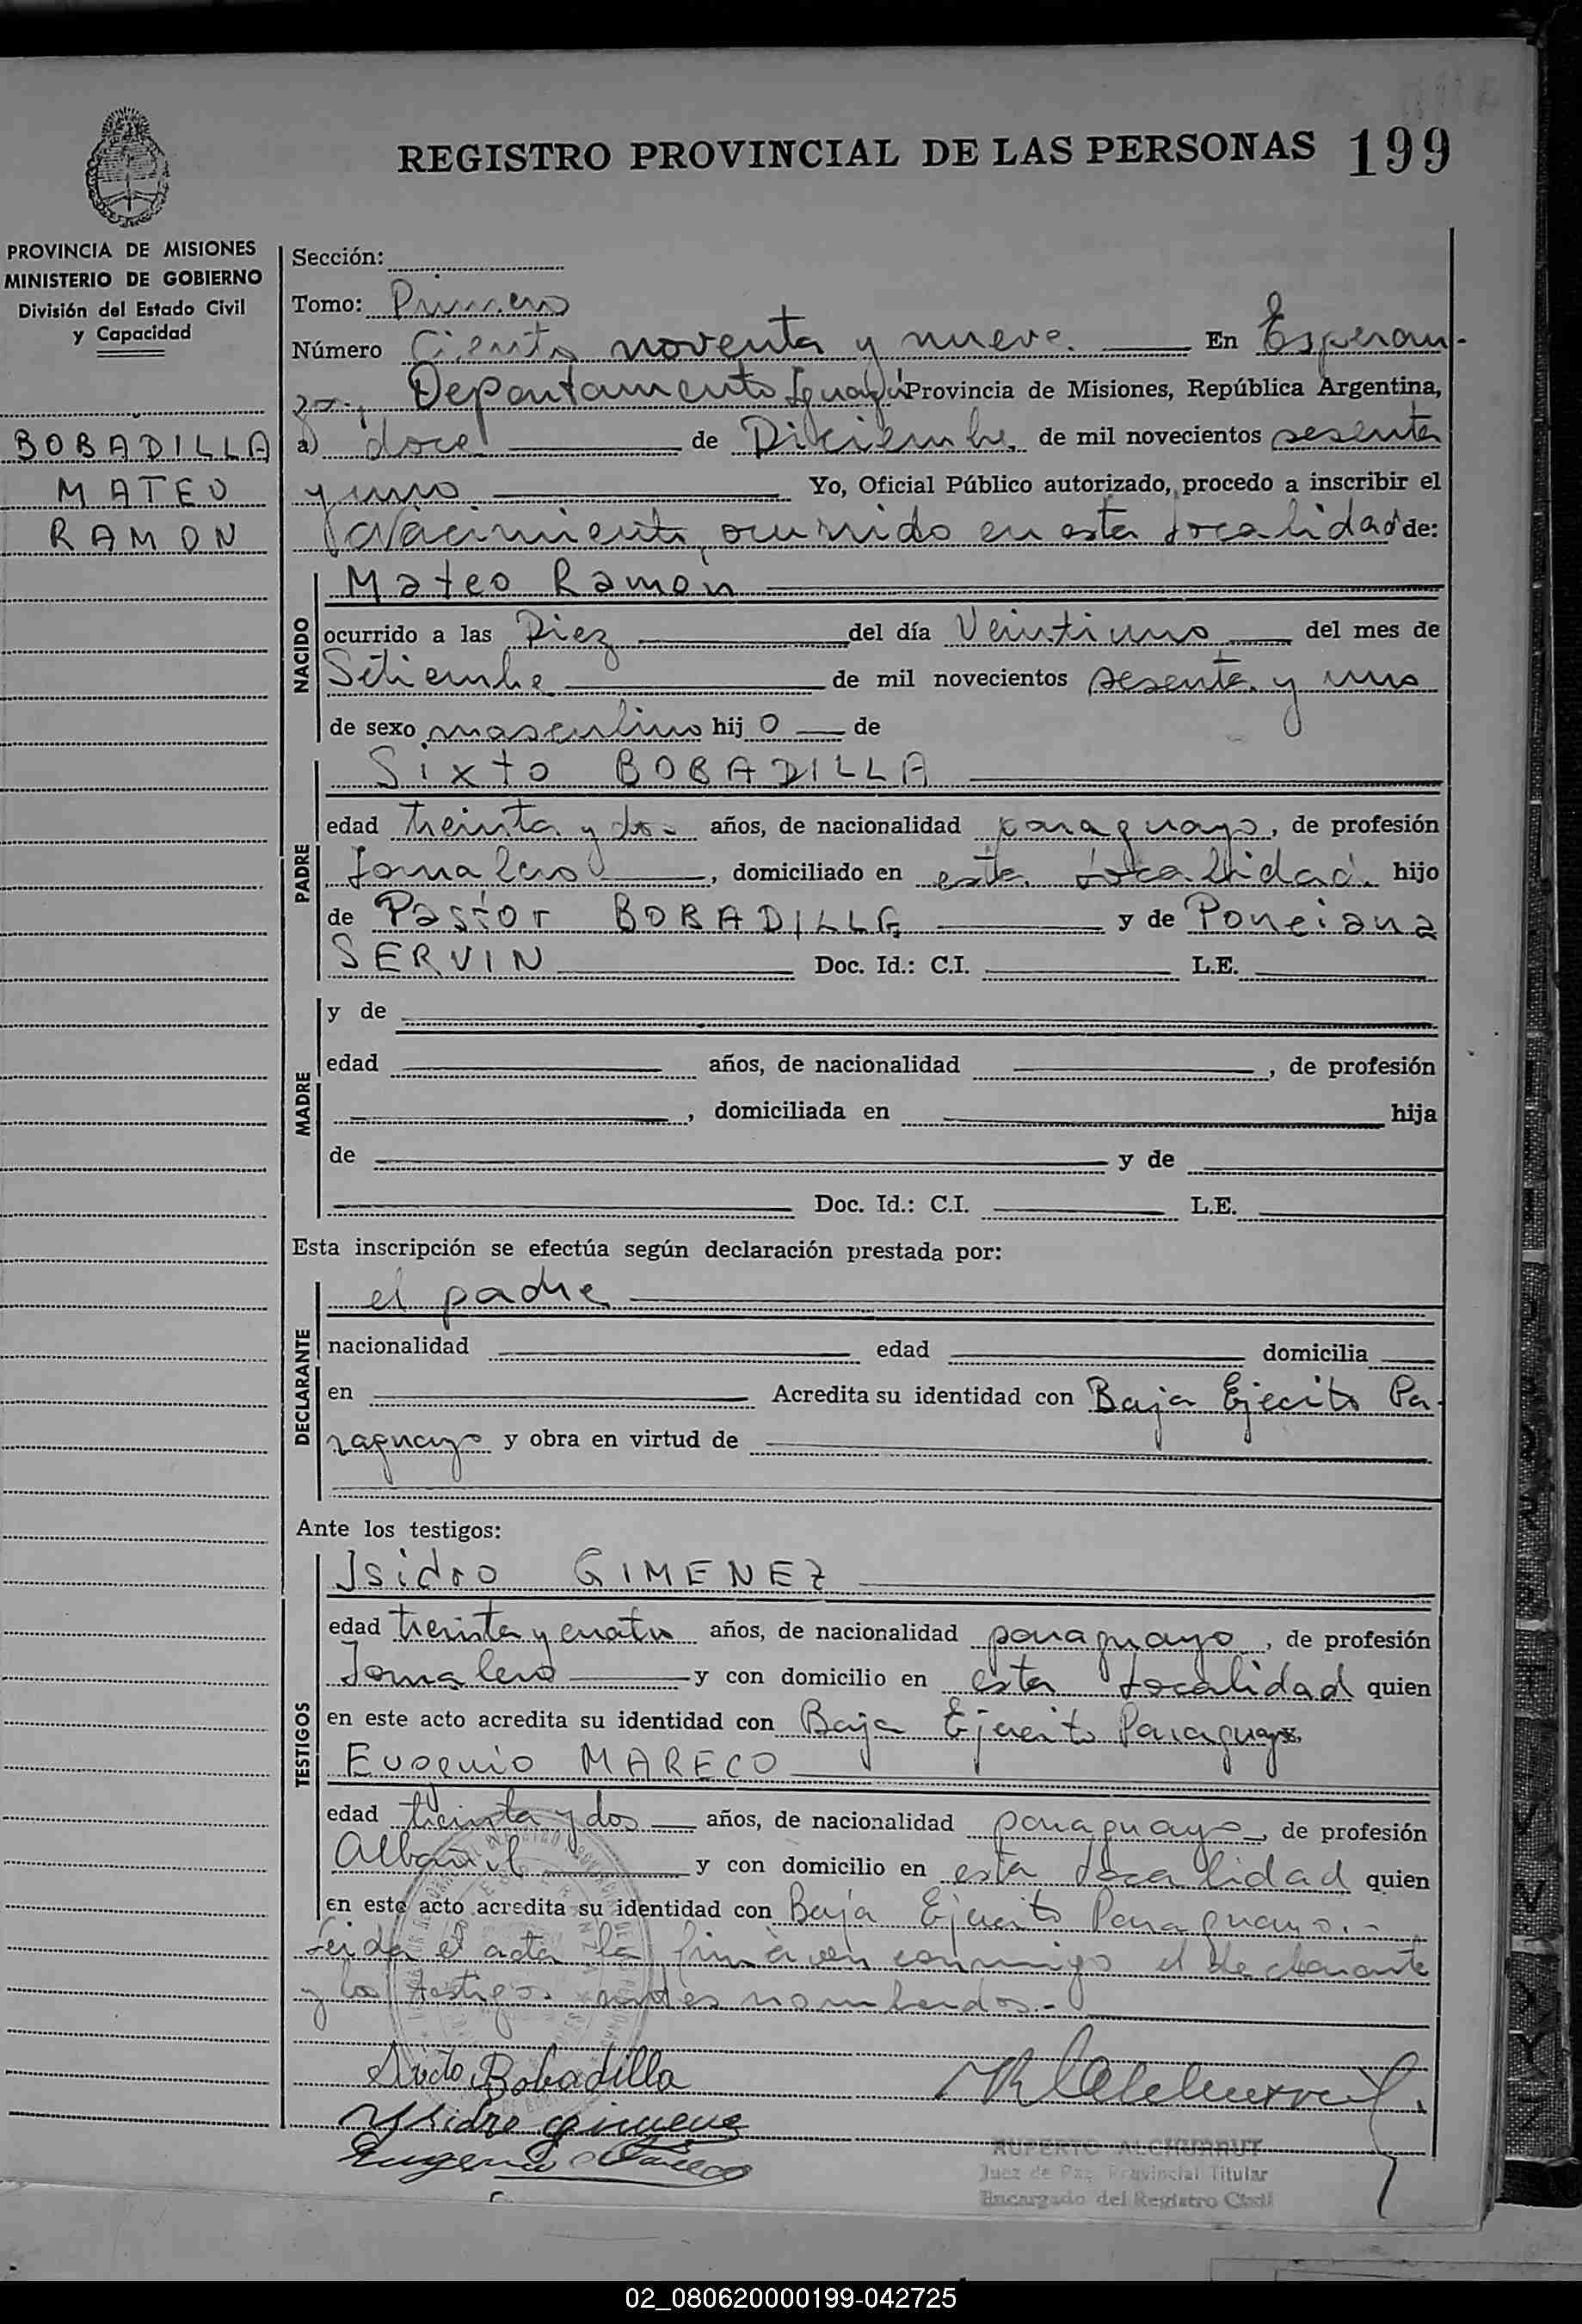 REGISTRO PROVINCIAL DE LAS PERSONAS 199
PROVINCIA DE MISIONES
MINISTERIO DE GOBIERNO
División del Estado Civil
y Capacidad
BOBADILLA
MATEO
RAMON
Sección:
Tomo: Primero
Número Ciento noventa y nueve. En Esperan-
za., Departamento Iguazú Provincia de Misiones, República Argentina,
a) doce de Diciembre, de mil novecientos sesenta
y uno Yo, Oficial Público autorizado, procedo a inscribir el
Nacimiento, ocurrido en esta localidad de:
NACIDO
Mateo Ramón
ocurrido a las Diez del día Veintiuno del mes de
Setiembre de mil novecientos sesenta y uno
de sexo masculino hij o de
PADRE
Sixto BOBADILLA
edad treinta y dos años, de nacionalidad paraguayo, de profesión
Jornalero, domiciliado en esta localidad. hijo
de Pastor BOBADILLA y de Ponciana
SERVIN Doc. Id.: C.I. L.E.
MADRE
y de
edad años, de nacionalidad , de profesión
, domiciliada en hija
de y de
Doc. Id.: C.I. L.E.
Esta inscripción se efectúa según declaración prestada por:
DECLARANTE
el padre
nacionalidad edad domicilia
en Acredita su identidad con Baja Ejecito Pa-
raguayo y obra en virtud de
Ante los testigos:
TESTIGOS
Isidro GIMENEZ
edad treinta y cuatro años, de nacionalidad paraguayo, de profesión
Jornalero y con domicilio en esta localidad quien
en este acto acredita su identidad con Baja Ejercito Paraguayo.
Eugenio MARECO
edad treinta y dos años, de nacionalidad paraguayo, de profesión
Albañil y con domicilio en esta localidad quien
en este acto acredita su identidad con Baja Ejercito Paraguayo.-
Leida el acta la firman conmigo el declarante
y los testigos antes nombrados.-
Sixto Bobadilla
Ysidro Gimenez
Eugenio Mareco
Juez de Paz Provincial Titular
Encargado del Registro Civil
02_080620000199-042725